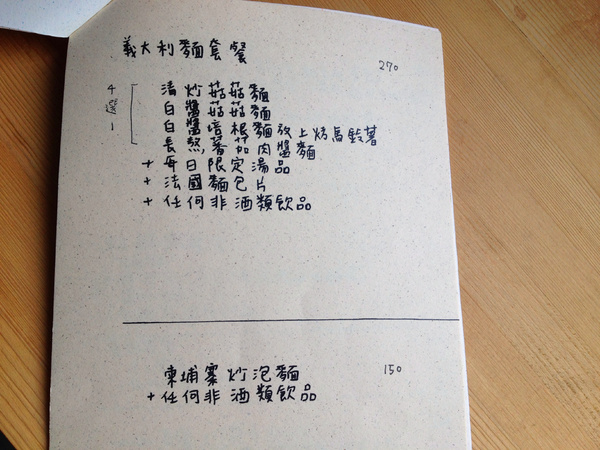 義大利麵套餐 270
4選1
清炒菇菇麵
白醬菇菇麵
白醬培根麵放上烤馬鈴薯
長熬蕃茄肉醬麵
+每日限定湯品
+法國麵包片
+任何非酒類飲品
柬埔寨炒泡麵 150
+任何非酒類飲品